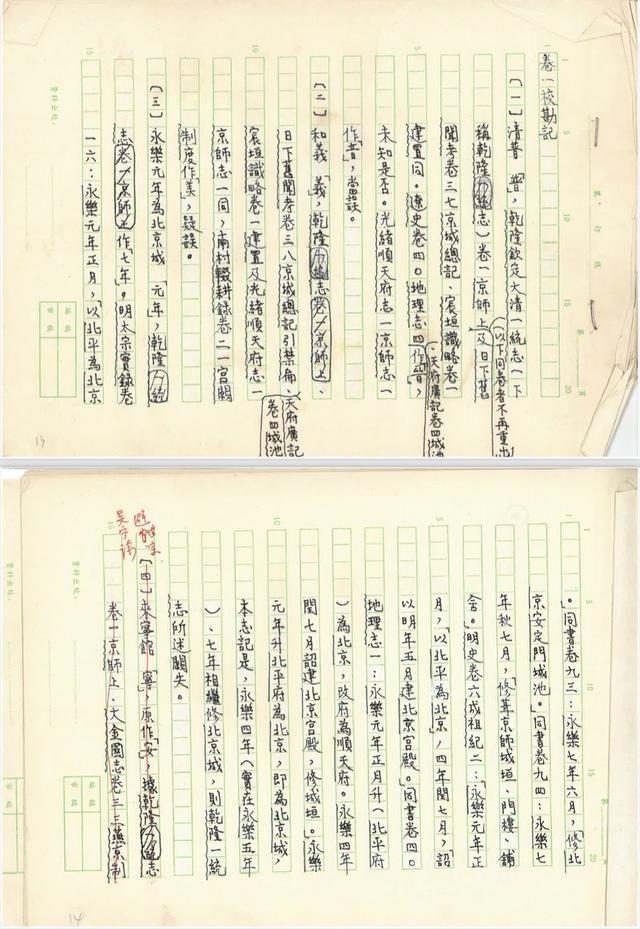 卷一校勘記
〔一〕清晉　「晉」，乾隆欽定大清一統志（以下同卷者不再重出
稱乾隆一統志）卷一京師上及日下舊
聞考卷三七京城總記、宸垣識略卷一
建置同。遼史卷四〇地理志四作「晉」，
天府廣記卷四城池
未知是否。光緒順天府志一京師志一
作「音」，當誤。
〔二〕和義　「義」，乾隆一統志卷一京師上、
日下舊聞考卷三八京城總記引禁扁、天府廣記
卷四城池
宸垣識略卷一建置及光緒順天府志一
京師志一同，南村輟耕錄卷二一宮闕
制度作「美」，疑誤。
〔三〕永樂元年為北京城　「元」年，乾隆一統
志卷一京師上作「七年」。明太宗實錄卷
一六：永樂元年正月，「以北平為北京
13
資料出處：
編稿
審稿
裝訂線
第　頁
1
5
10
15
20
」。同書卷九三：永樂七年六月，「修北
京安定門城池。」同書卷九四：永樂七
年秋七月，「修葺京師城垣、門樓、舖
舍。」明史卷六成祖紀二：「永樂元年正
月，「以北平為北京」，四年閏七月，「詔
以明年五月建北京宮殿。」同書卷四〇
地理志一：永樂元年正月升（北平府
）為北京，改府為順天府。永樂四年
閏七月詔建北京宮殿，修城垣。」永樂
元年升北平府為北京，即為北京城，
本志記是，永樂四年（實在永樂五年
）、七年相繼修北京城，則乾隆一統
志所述闕失。
〔四〕來寧館　「寧」，原作「安」，據乾隆一統志
卷一京師上、大金國志卷三三燕京制
14
資料出處：
編稿
審稿
1
5
10
15
20